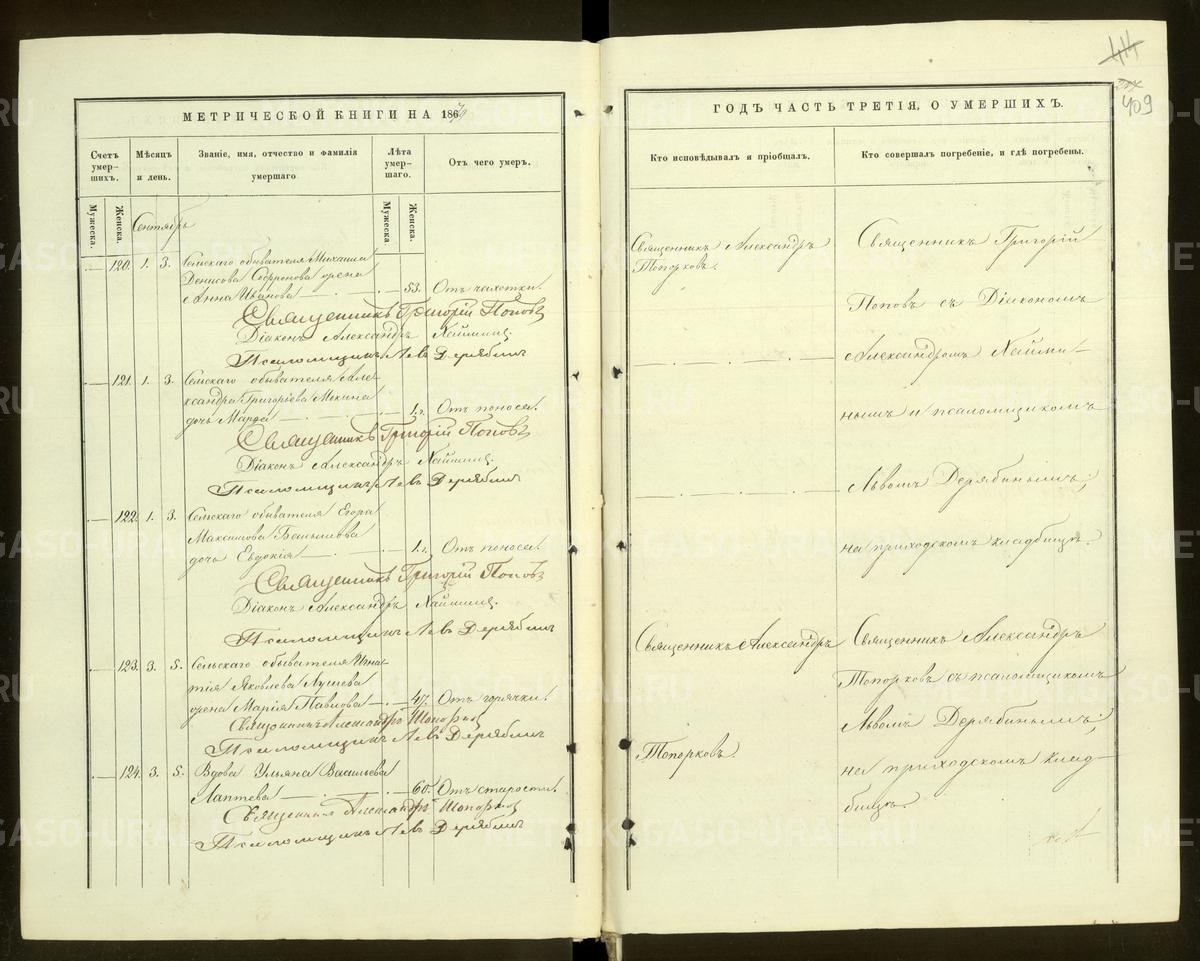 МЕТРИЧЕСКОЙ КНИГИ НА 1870
Счетъ умер-шихъ.
Мѣсяцъ и день.
Званіе, имя, отчество и фамилія умершаго
Лѣта умер-шаго.
Отъ чего умеръ.
Мужеска.
Женска.
Мужеска.
Женска.
Сентябрь
120. 1. 3. Сельскаго обывателя Михаила
Денисова Софронова жена
Анна Иванова 53. Отъ чахотки.
Священникъ Григорій Поповъ
Діаконъ Александръ
Псаломщикъ Левъ Дерябинъ
121. 1. 3. Сельскаго обывателя Але-
ксандра Григорьева Мокина
дочь Марѳа 1 г. Отъ поноса.
Священникъ Григорій Поповъ
Діаконъ Александръ
Псаломщикъ Левъ Дерябинъ
122. 1. 3. Сельскаго обывателя Егора
Максимова
дочь Евдокія 1 г. Отъ поноса.
Священникъ Григорій Поповъ
Діаконъ Александръ
Псаломщикъ Левъ Дерябинъ
123. 3. 5. Сельскаго обывателя Игна-
тія Яковлева
жена Марія Павлова 47. Отъ горячки.
Священникъ Александръ Топорковъ
Псаломщикъ Левъ Дерябинъ
124. 3. 5. Вдова Ульяна Васильева
Лаптева 60. Отъ старости.
Священникъ Александръ Топорковъ
Псаломщикъ Левъ Дерябинъ
44
409
ГОДЪ ЧАСТЬ ТРЕТІЯ, О УМЕРШИХЪ.
Кто исповѣдывалъ и пріобщалъ.
Кто совершалъ погребеніе, и гдѣ погребены.
Священникъ Александръ
Топорковъ.
Священникъ Григорій
Поповъ съ Діакономъ
Александромъ
нымъ и псаломщикомъ
Львомъ Дерябинымъ,
на приходскомъ кладбищѣ.
Священникъ Александръ
Топорковъ.
Священникъ Александръ
Топорковъ съ псаломщикомъ
Львомъ Дерябинымъ,
на приходскомъ клад-
бищѣ.